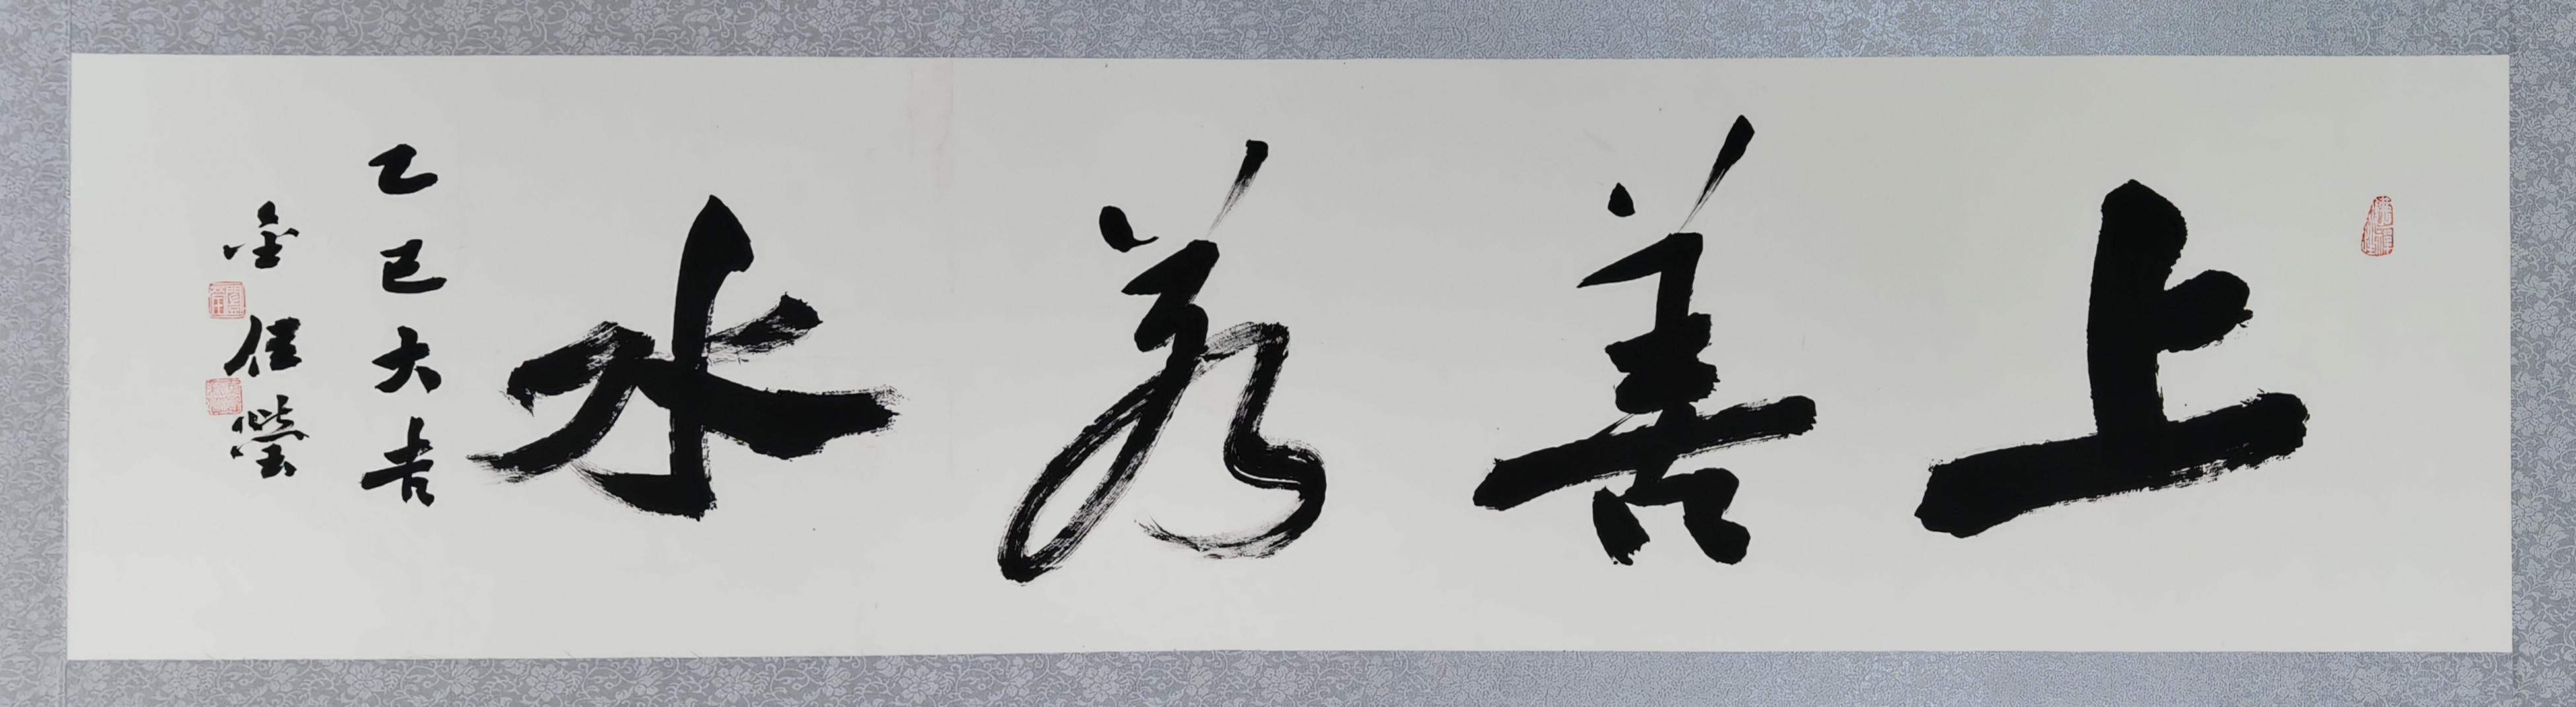 上善若水
乙巳大吉
金佳瑩